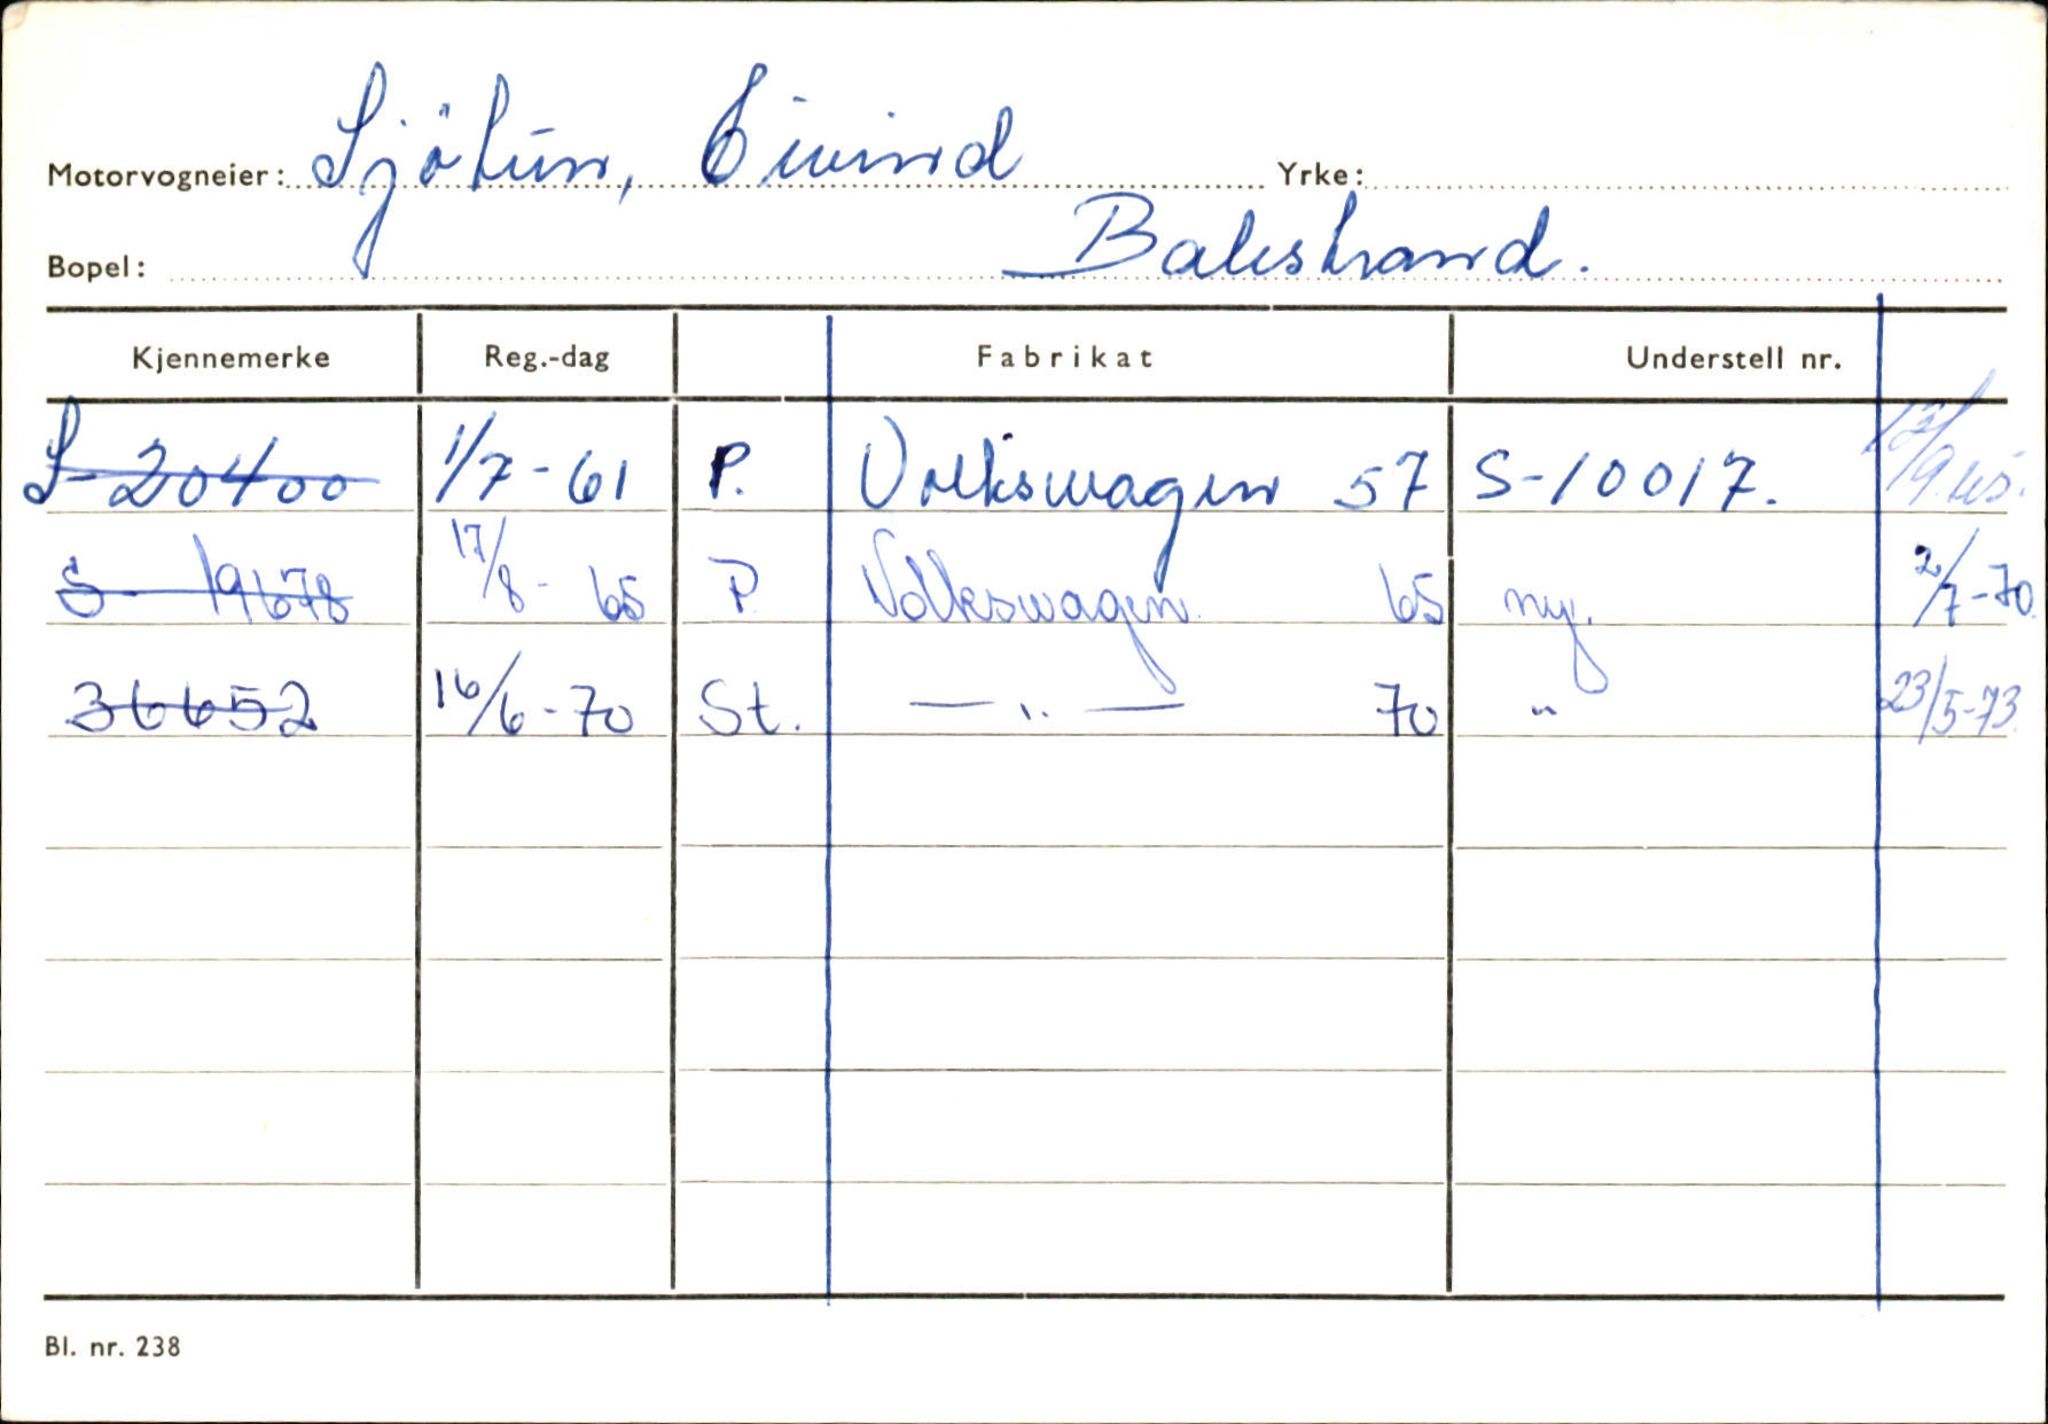 Motorvogneier: Sjötun, Eivind Yrke:
Bopel: Balestrand.
Kjennemerke Reg.-dag Fabrikat Understell nr.
S-20400 1/7-61 P. Volkswagen 57 S-10017. 13/9.65.
S-19678 17/8-65 P Volkswagen 65 ny. 2/7-70
36652 16/6-70 St. —"— 70 " 23/5-73.
Bl. nr. 238